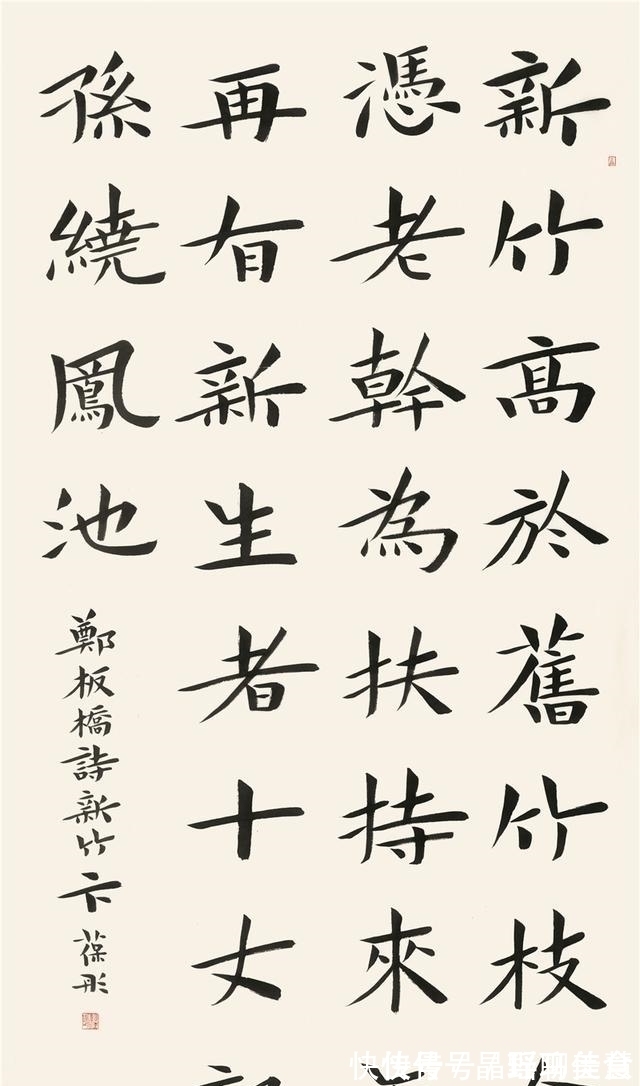 新竹髙於舊竹枝
憑老幹為扶持來
再有新生者十丈
孫繞鳳池
鄭板橋詩新竹 卞葆